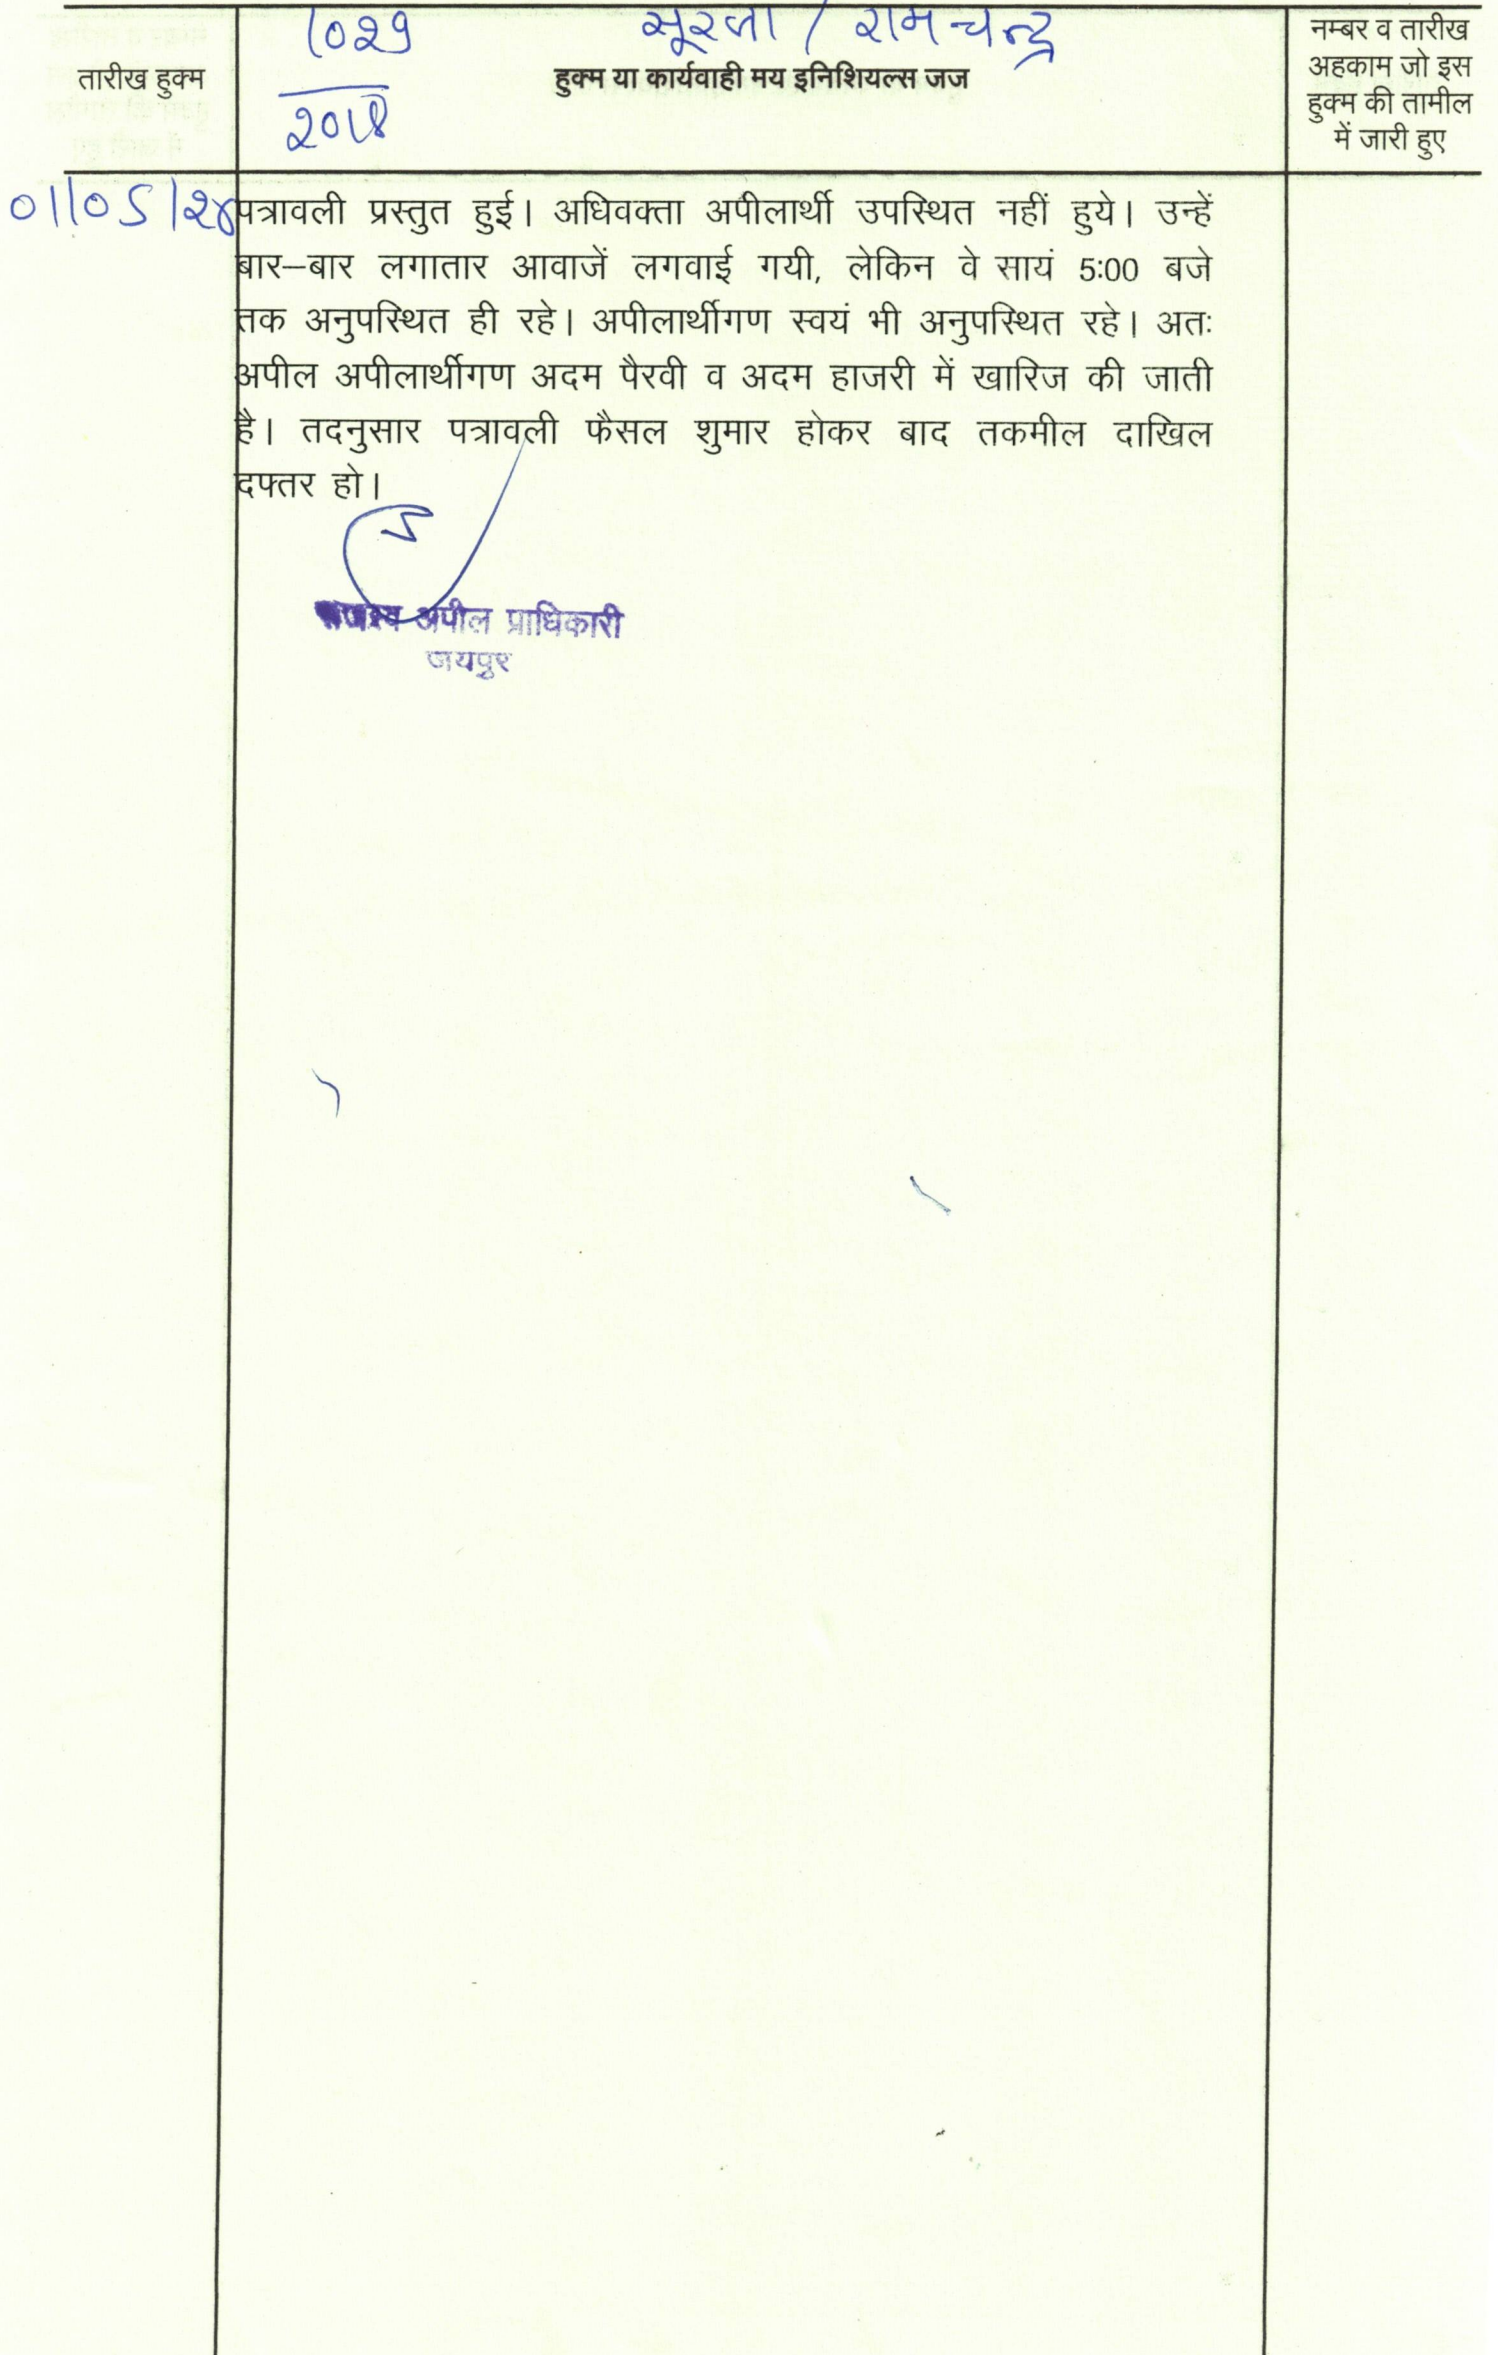 1029 सूरजा / रामचन्द्र
2018
तारीख हुक्म
हुक्म या कार्यवाही मय इनिशियल्स जज
नम्बर व तारीख
अहकाम जो इस
हुक्म की तामील
में जारी हुए
01/05/24
पत्रावली प्रस्तुत हुई। अधिवक्ता अपीलार्थी उपस्थित नहीं हुये। उन्हें
बार–बार लगातार आवाजें लगवाई गयी, लेकिन वे सायं 5:00 बजे
तक अनुपस्थित ही रहे। अपीलार्थीगण स्वयं भी अनुपस्थित रहे। अतः
अपील अपीलार्थीगण अदम पैरवी व अदम हाजरी में खारिज की जाती
है। तदनुसार पत्रावली फैसल शुमार होकर बाद तकमील दाखिल
दफ्तर हो।
राजस्व अपील प्राधिकारी
जयपुर